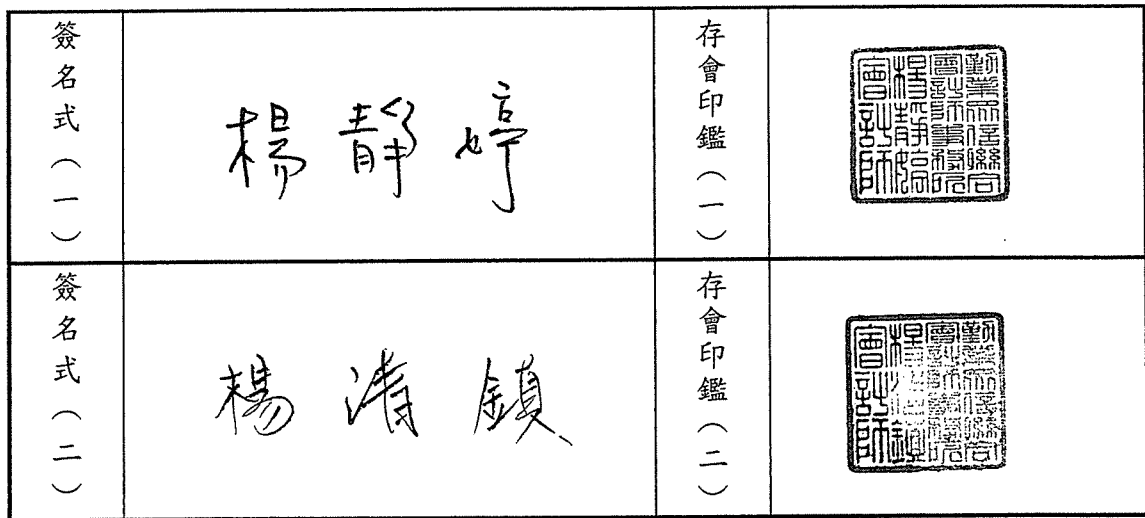 簽名式（一）
楊靜婷
存會印鑑（一）
勤業眾信聯合
會計師事務所
楊靜婷
會計師
簽名式（二）
楊清鎮
存會印鑑（二）
勤業眾信聯合
會計師事務所
楊清鎮
會計師